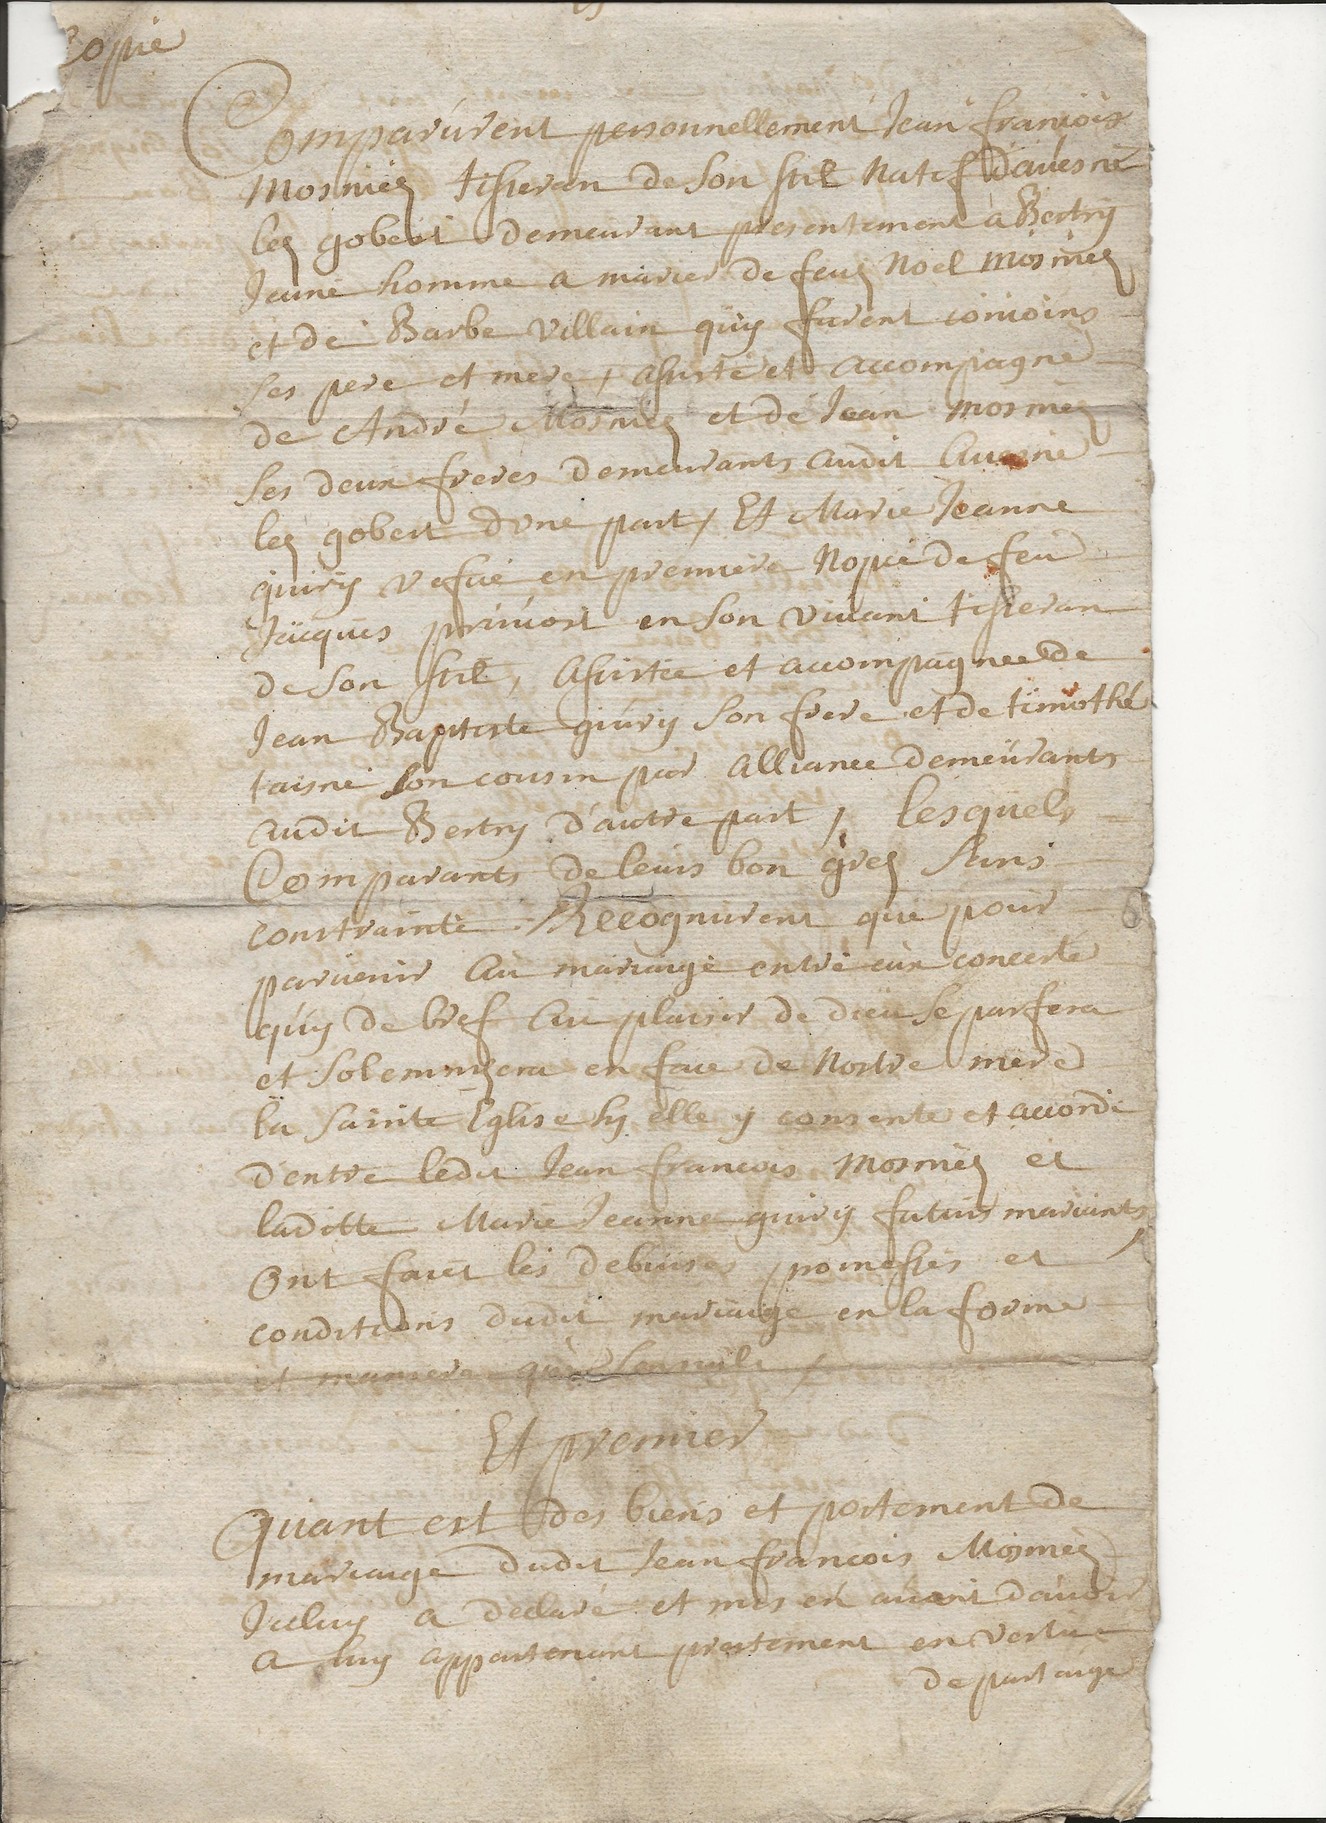 Copie
Comparurent personnellement Jean francois
Mosniez tisseran de son stil natif d'avesne
lez gobert demeurant presentement à Bertry
Jeune homme a marier de feuz Noel Mosniez
et de Barbe Villain quy furent conioins
ses pere et mere, assisté et accompagné
de André Mosniez et de Jean Mosniez
ses deux freres demeurants audit Avesne
lez gobert d'une part, Et Marie Jeanne
quiry vefue en premiere Nopce de feu
Jacques privost en son vivant tisseran
de son stil, assistée et accompagnee de
Jean Baptiste quiry son frere et de timothé
taisne son cousin par alliance demeurants
audit Bertry d'autre part, lesquels
Comparants de leurs bon grez sans
contrainte Recognurent que pour
parvenir au mariage entre eux concerte
quy de bref au plaisir de dieu se parfera
et solemnizera en face de Nostre mere
la sainte Eglise sy elle y consente et accorde
d'entre ledit Jean francois Mosniez et
laditte Marie Jeanne quiry futurs mariants
Ont faict les debuises pomesses et
conditions dudit mariaige en la forme
et maniere que sensuit,
Et premier
Quant est des biens et portement de
mariaige dudit Jean francois Mosniez
Iceluy a declaré et mis en avant d'avoir
a luy appartenant prestement en vertu
de partaige